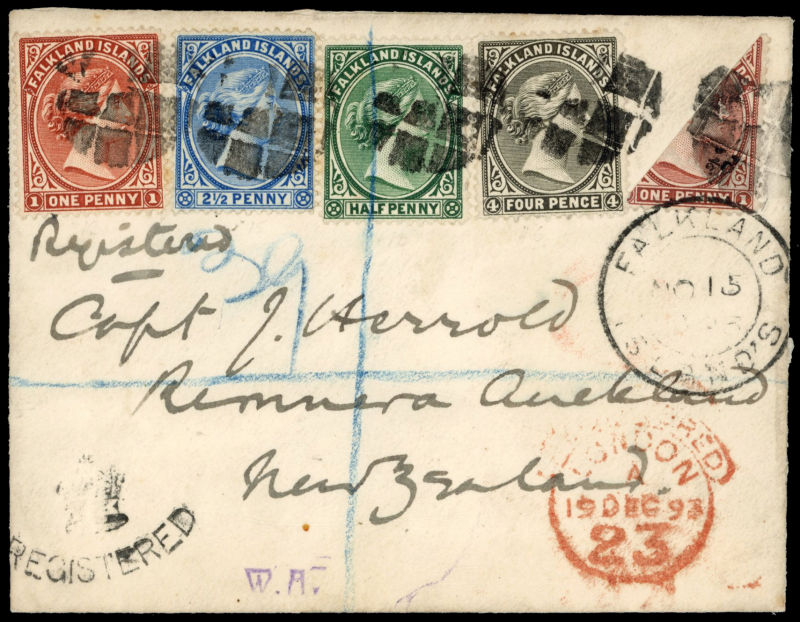 FALKLAND ISLANDS
1 ONE PENNY 1
FALKLAND ISLANDS
2½ PENNY
FALKLAND ISLANDS
HALF PENNY
FALKLAND ISLANDS
4 FOUR PENCE 4
ONE PENNY 1
Registered
Capt J. Herrold
Remuera Auckland
New Zealand.
FALKLAND
NO 15
ISLANDS
REGISTERED
LONDON
A
19 DEC 93
23
REGISTERED
W.A.